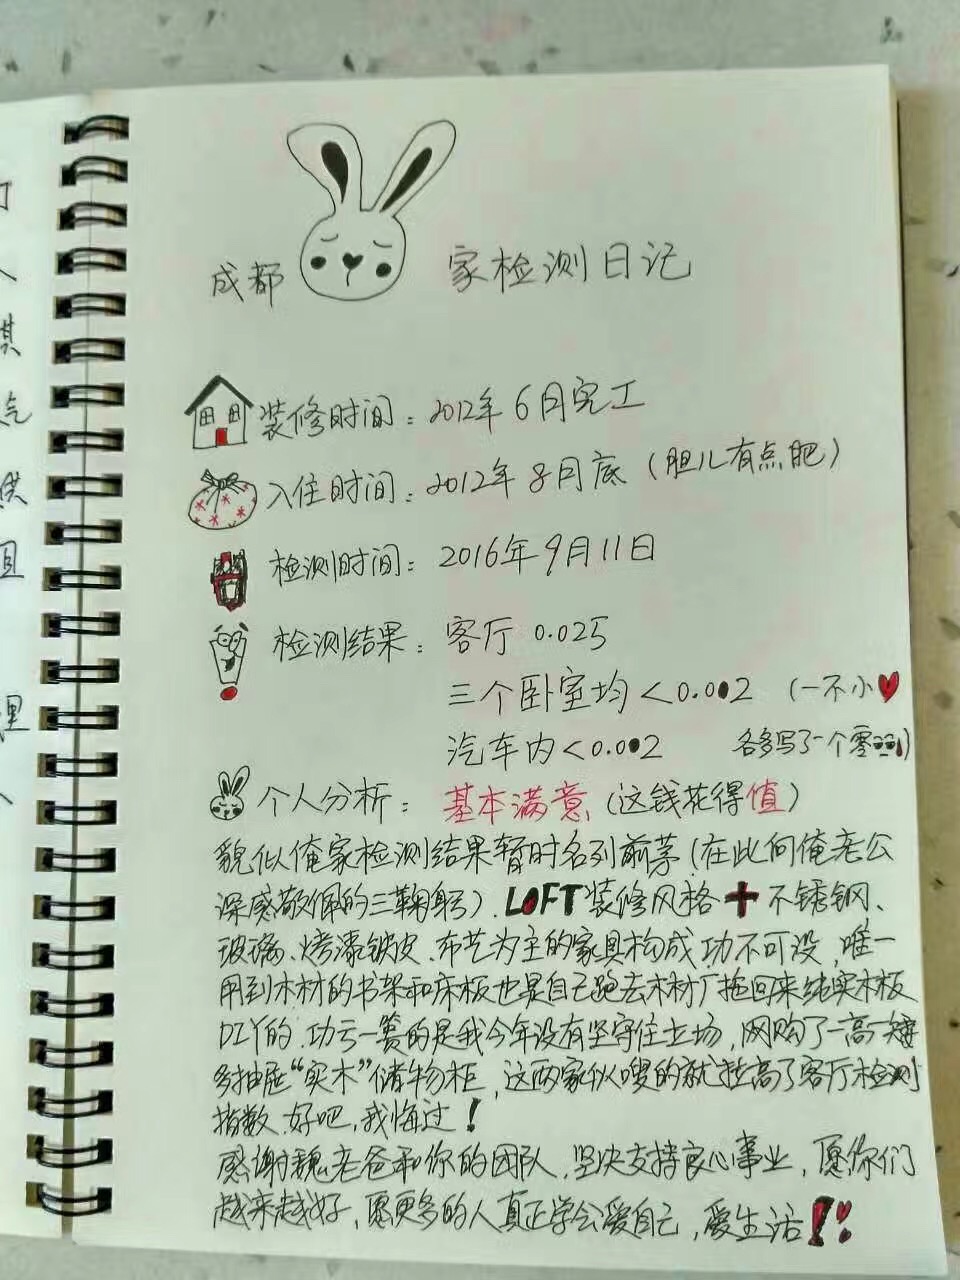 成都 家检测日记
装修时间：2012年6月完工
入住时间：2012年8月底（胆儿有点肥）
检测时间：2016年9月11日
检测结果：客厅 0.025
三个卧室均<0.002 （一不小
汽车内<0.002 各多写了一个零）
个人分析：基本满意（这钱花得值）
貌似俺家检测结果暂时名列前茅（在此向俺老公
深感敬佩的三鞠躬）.LOFT装修风格+不锈钢、
玻璃、烤漆铁皮、布艺为主的家具构成功不可没，唯一
用到木材的书架和床板也是自己跑去木材厂拖回来纯实木板
DIY的.功亏一篑的是我今年没有坚守住立场，网购了一高一矮
多抽屉“实木”储物柜，这两家伙嗖的就拉高了客厅检测
指数.好吧，我悔过！
感谢魏老爸和你的团队，坚决支持良心事业，愿你们
越来越好，愿更多的人真正学会爱自己，爱生活！！
丁
其
气
供
且
理